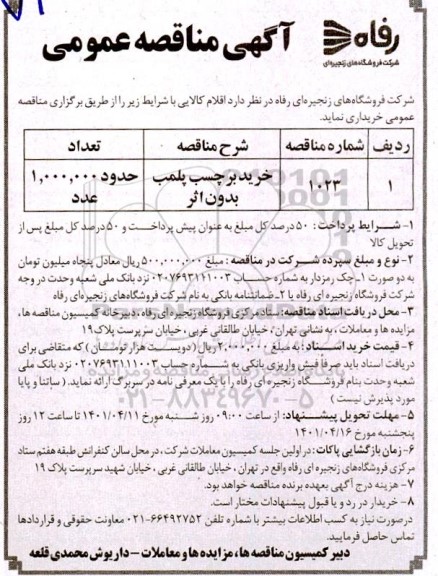 رفاه
شرکت فروشگاه‌های زنجیره‌ای
آگهی مناقصه عمومی
شرکت فروشگاه‌های زنجیره‌ای رفاه در نظر دارد اقلام کالایی با شرایط زیر را از طریق برگزاری مناقصه
عمومی خریداری نماید.
ردیف شماره مناقصه شرح مناقصه تعداد
۱ ۱۰۲۳ خرید برچسب پلمب بدون اثر حدود ۱,۰۰۰,۰۰۰ عدد
۱- شرایط پرداخت: ۵۰ درصد کل مبلغ به عنوان پیش پرداخت و ۵۰ درصد کل مبلغ پس از
تحویل کالا
۲- نوع و مبلغ سپرده شرکت در مناقصه: مبلغ ۵۰۰,۰۰۰,۰۰۰ ریال معادل پنجاه میلیون تومان
به دو صورت ۱- چک رمزدار به شماره حساب ۰۲۰۷۶۹۳۱۱۱۰۰۳ نزد بانک ملی شعبه وحدت در وجه
شرکت فروشگاه زنجیره ای رفاه یا ۲- ضمانتنامه بانکی به نام شرکت فروشگاه‌های زنجیره‌ای رفاه
۳- محل دریافت اسناد مناقصه: ستاد مرکزی فروشگاه زنجیره ای رفاه، دبیرخانه کمیسیون مناقصه ها،
مزایده ها و معاملات، به نشانی تهران، خیابان طالقانی غربی، خیابان سرپرست پلاک ۱۹
۴- قیمت خرید اسناد: به مبلغ ۲,۰۰۰,۰۰۰ ریال (دویست هزار تومان) که متقاضی برای
دریافت اسناد باید صرفا فیش واریزی بانکی به شماره حساب ۰۲۰۷۶۹۳۱۱۱۰۰۳ نزد بانک ملی
شعبه وحدت بنام فروشگاه زنجیره ای رفاه را با یک معرفی نامه در سربرگ ارائه نماید. (ساتنا و پایا
مورد پذیرش نیست)
۵- مهلت تحویل پیشنهاد: از ساعت ۰۹:۰۰ روز شنبه مورخ ۱۴۰۱/۰۴/۱۱ تا ساعت ۱۲ روز
پنجشنبه مورخ ۱۴۰۱/۰۴/۱۶
۶- زمان بازگشایی پاکات: در اولین جلسه کمیسیون معاملات شرکت، در محل سالن کنفرانش طبقه هفتم ستاد
مرکزی فروشگاه‌های زنجیره ای رفاه واقع در تهران، خیابان طالقانی غربی، خیابان شهید سرپرست پلاک ۱۹
۷- هزینه درج آگهی بعهده برنده مناقصه خواهد بود.
۸- خریدار در رد و یا قبول پیشنهادات مختار است.
در صورت نیاز به کسب اطلاعات بیشتر با شماره تلفن ۶۶۴۹۲۷۵۲-۰۲۱ معاونت حقوقی و قراردادها
تماس حاصل فرمایید.
دبیر کمیسیون مناقصه ها، مزایده ها و معاملات - داریوش محمدی قلعه
۰۲۱-۸۸۳۴۹۶۷۰-۵